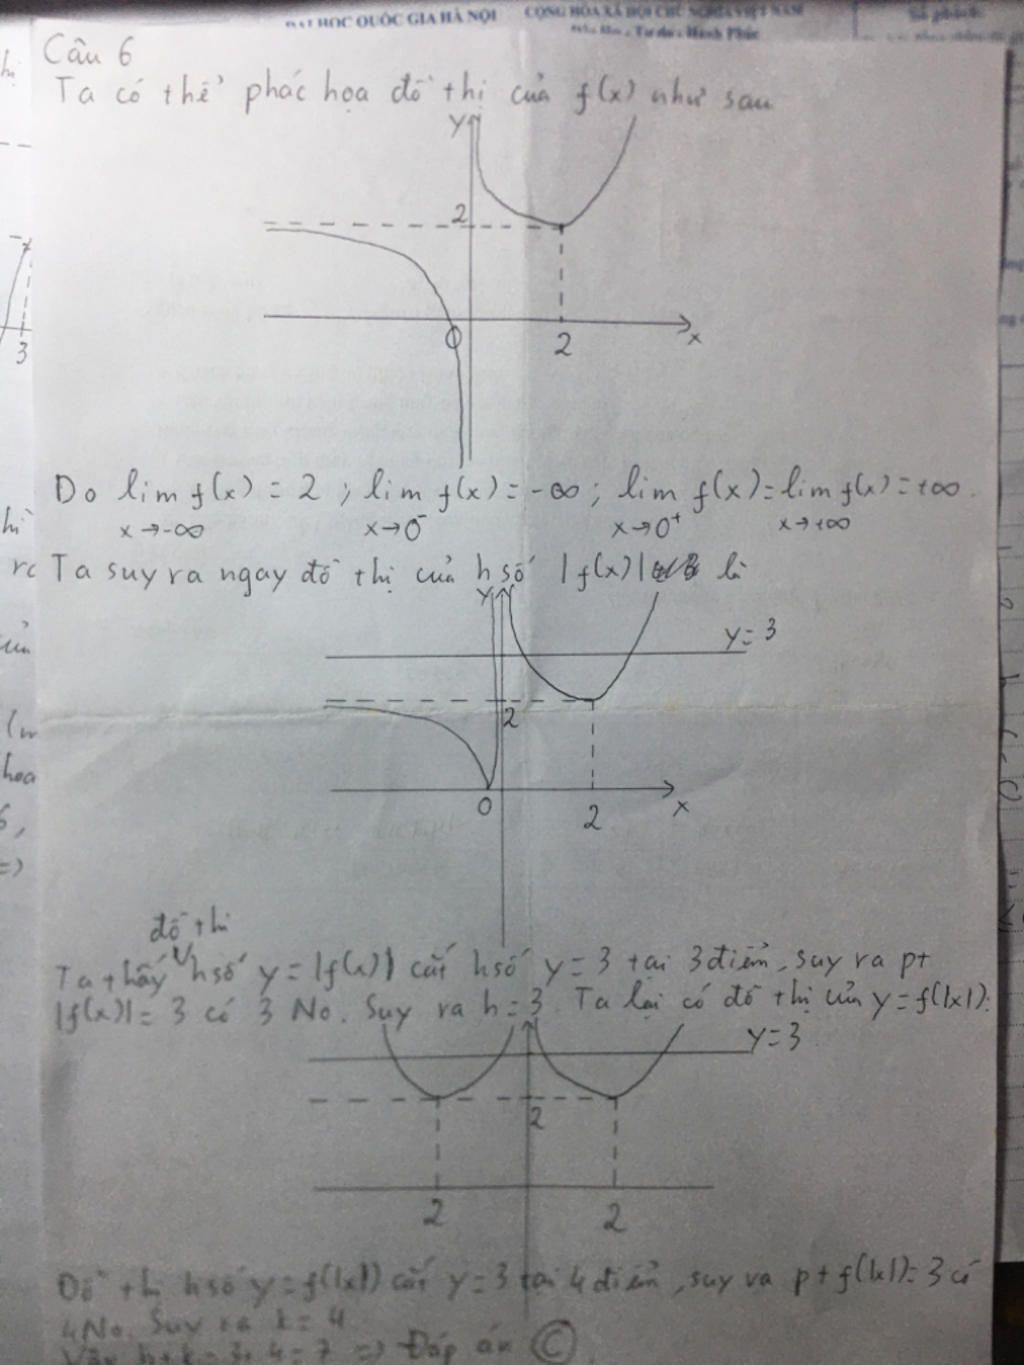 ĐẠI HỌC QUỐC GIA HÀ NỘI CỘNG HÒA XÃ HỘI CHỦ NGHĨA VIỆT NAM
Độc lập - Tự do - Hạnh Phúc
Câu 6
Ta có thể phác họa đồ thị của f(x) như sau
y
2
O
2
x
3
Do lim f(x) = 2 ; lim f(x) = -∞ ; lim f(x) = lim f(x) = +∞.
x→-∞ x→0⁻ x→0⁺ x→+∞
Ta suy ra ngay đồ thị của h số |f(x)| là
y
y=3
2
O
2
x
đồ thị
Ta thấy h số y = |f(x)| cắt h số y = 3 tại 3 điểm, suy ra pt
|f(x)| = 3 có 3 No. Suy ra h = 3. Ta lại có đồ thị của y = f(|x|):
y=3
2
2
2
Đồ thị h số y = f(|x|) cắt y = 3 tại 4 điểm, suy ra pt f(|x|) = 3 có
4 No. Suy ra k = 4
Vậy h+k = 3+4 = 7 => Đáp án C